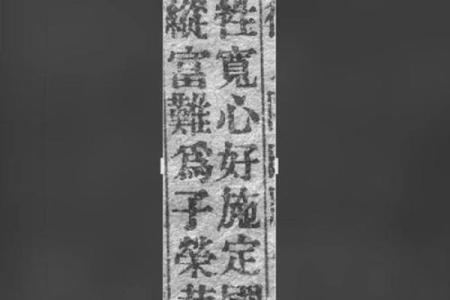 性寬心好施定
縱富難爲子榮